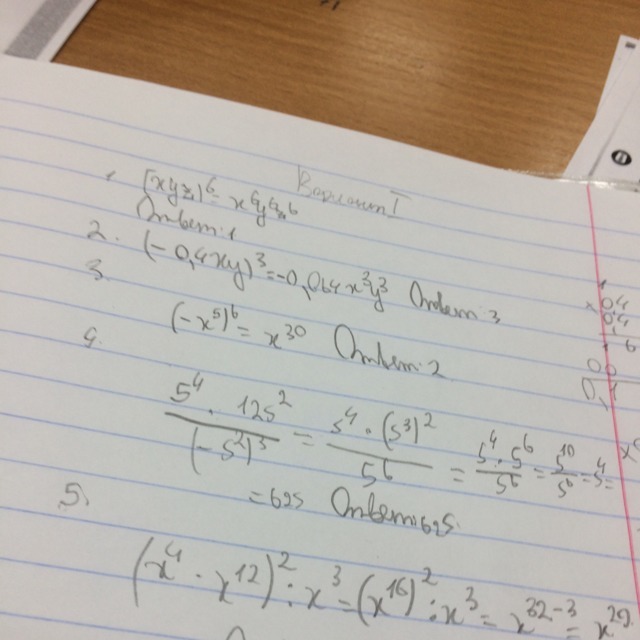 Вариант I
1. (xyz)⁶ = x⁶y⁶z⁶
Ответ: 1
2. (-0,4xy)³ = -0,064x³y³ Ответ: 3
3.
(-x⁵)⁶ = x³⁰ Ответ: 2
4.
5⁴ · 125² / (-5²)³ = 5⁴ · (5³)² / 5⁶ = 5⁴ · 5⁶ / 5⁶ = 5¹⁰ / 5⁶ = 5⁴ =
= 625 Ответ: 625
5.
(x⁴ · x¹²)² : x³ = (x¹⁶)² : x³ = x³²⁻³ = x²⁹